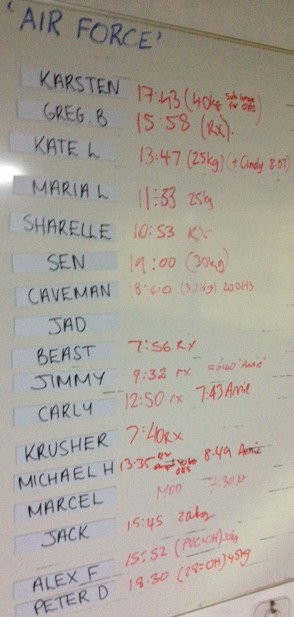 'AIR FORCE'
KARSTEN 17:43 (40kg
GREG.B 15:58 (Rx).
KATE L 13:47 (25kg) (+ Cindy 8:07)
MARIA L 11:33 25kg
SHARELLE 10:53 RX
SEN 19:00 (30kg)
CAVEMAN
JAD
BEAST 7:56 RX
JIMMY 9:32 rx Annie
CARLY 12:50 rx 7:43 Annie
KRUSHER 7:40 RX
MICHAEL H 13:35 RX 8:49 Annie
MARCEL MED
JACK 15:45 20kg
ALEX F 15:52
PETER D 18:30 45kg